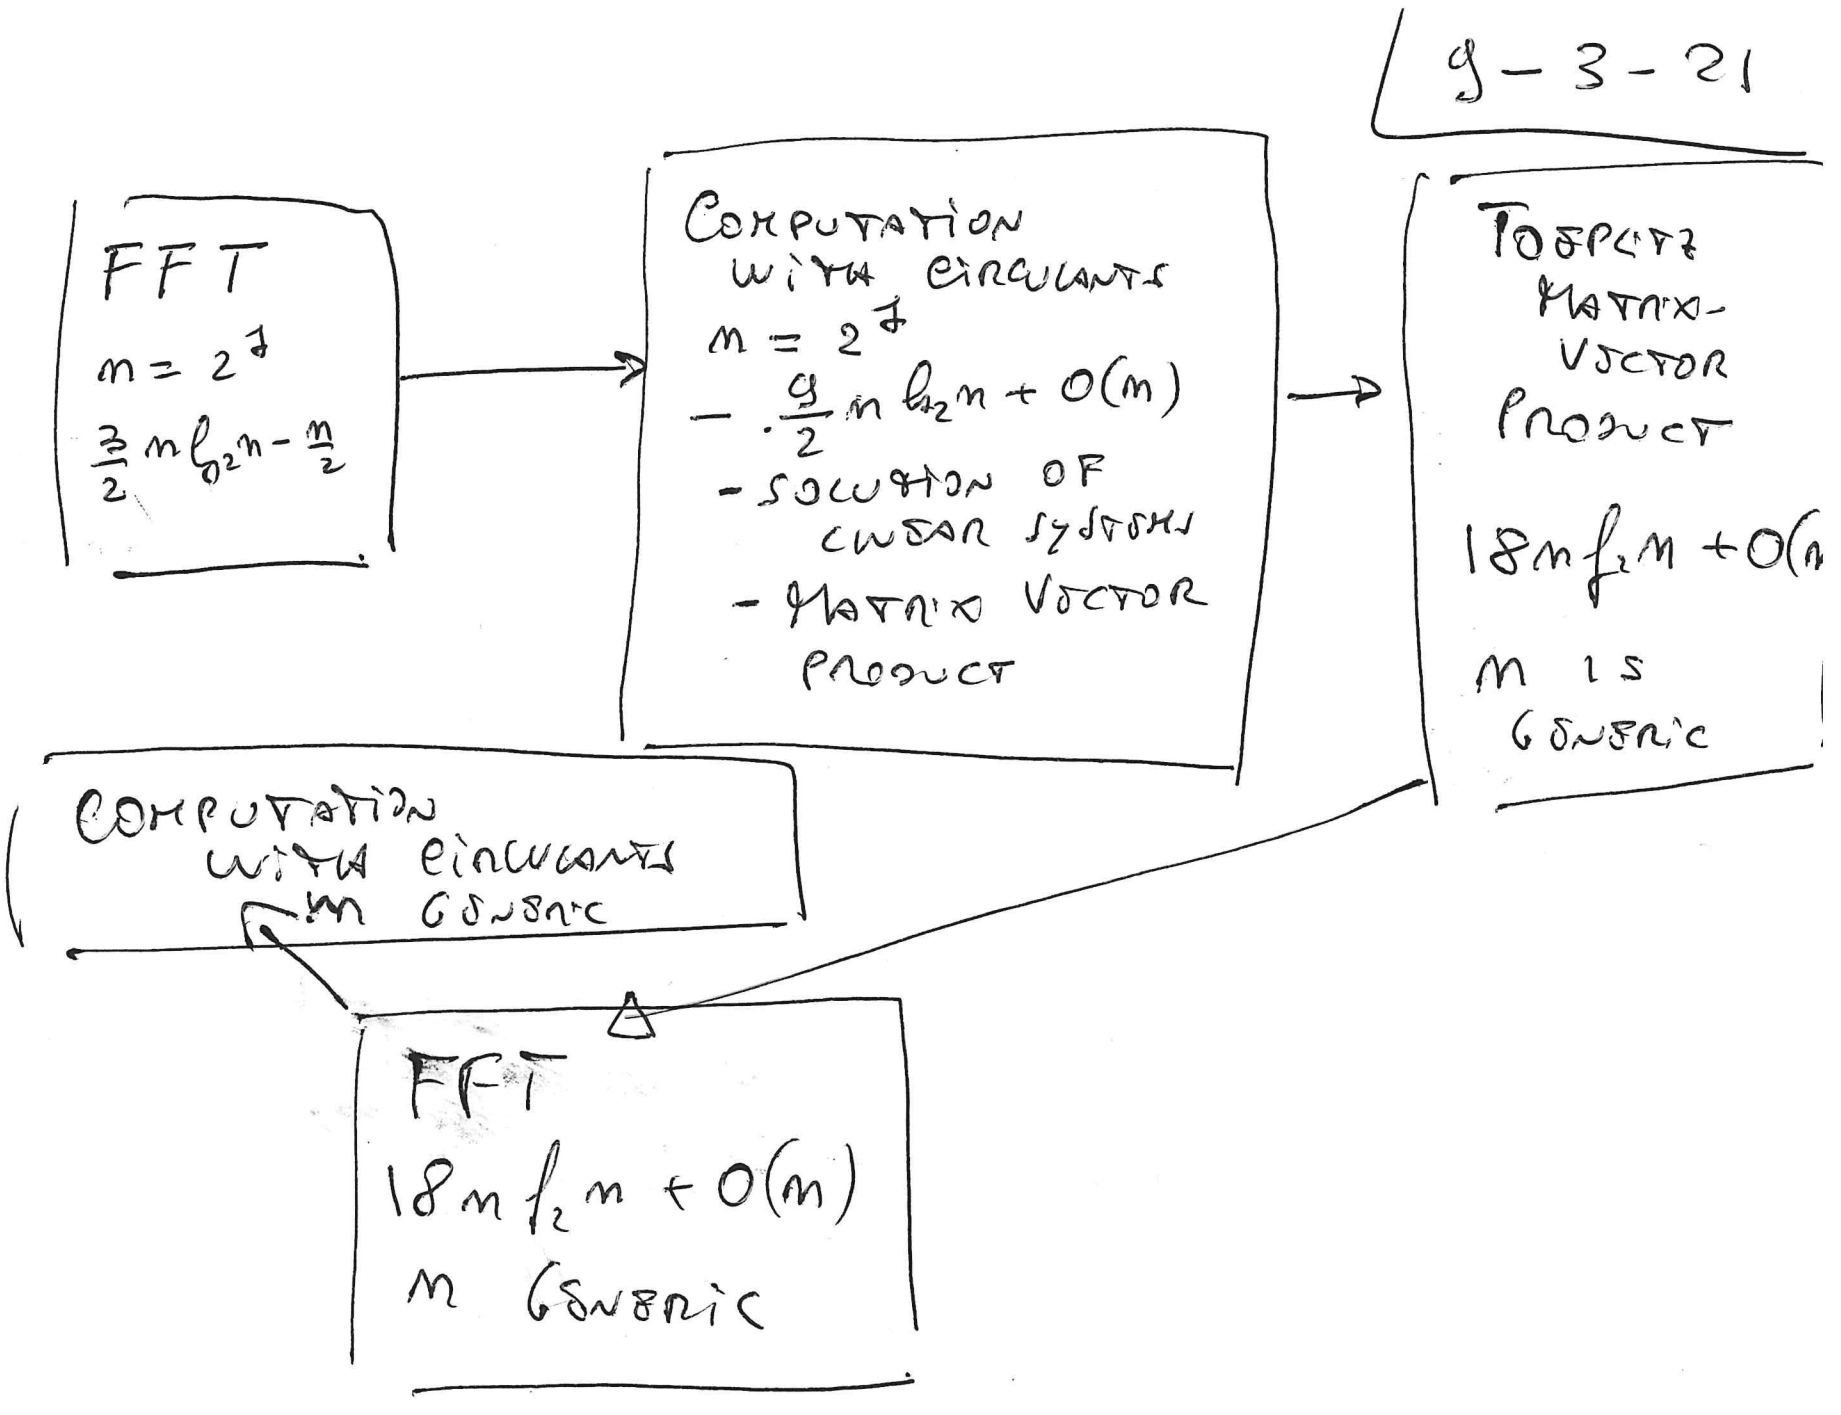 9-3-21
FFT
n = 2^q
3/2 n log₂n - n/2
COMPUTATION
WITH CIRCULANTS
n = 2^q
- 9/2 n log₂n + O(n)
- SOLUTION OF
LINEAR SYSTEMS
- MATRIX VECTOR
PRODUCT
TOEPLITZ
MATRIX-
VECTOR
PRODUCT
18n log₂n + O(n
n IS
GENERIC
COMPUTATION
WITH CIRCULANTS
n GENERIC
FFT
18n log₂n + O(n)
n GENERIC